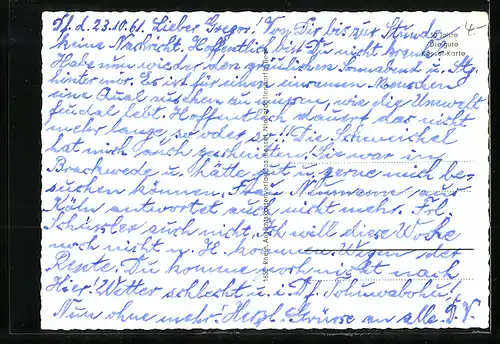 d. 23.10.61. Lieber Gregor! Von Dir bis zur Stunde
keine Nachricht. Hoffentlich bist Du nicht krank.
Habe nun wieder den gräulichen Sonnabend u. Stg.
hinter mir. Es ist für einen einsamen Menschen
eine Qual zusehen zu müssen, wie die Umwelt
feudal lebt. Hoffentlich dauert das nicht
mehr lange, so oder so!!! Die Schmichel
hat mich auch Sie war im
Brackwede u. hätte gut u. gerne mich be-
suchen können. Neumann aus
Köln antwortet auch nicht mehr. Frl.
Schüssler auch nicht. Ich will diese Woche
noch nicht n. H. kommen. Wegen der
Rente. Du komme noch nicht nach
Hier! Wetter schlecht u. i. Tohuwabohu!
Nun ohne mehr. Herzl. Grüsse an alle. D. V.
Die gute
Karte
4.-